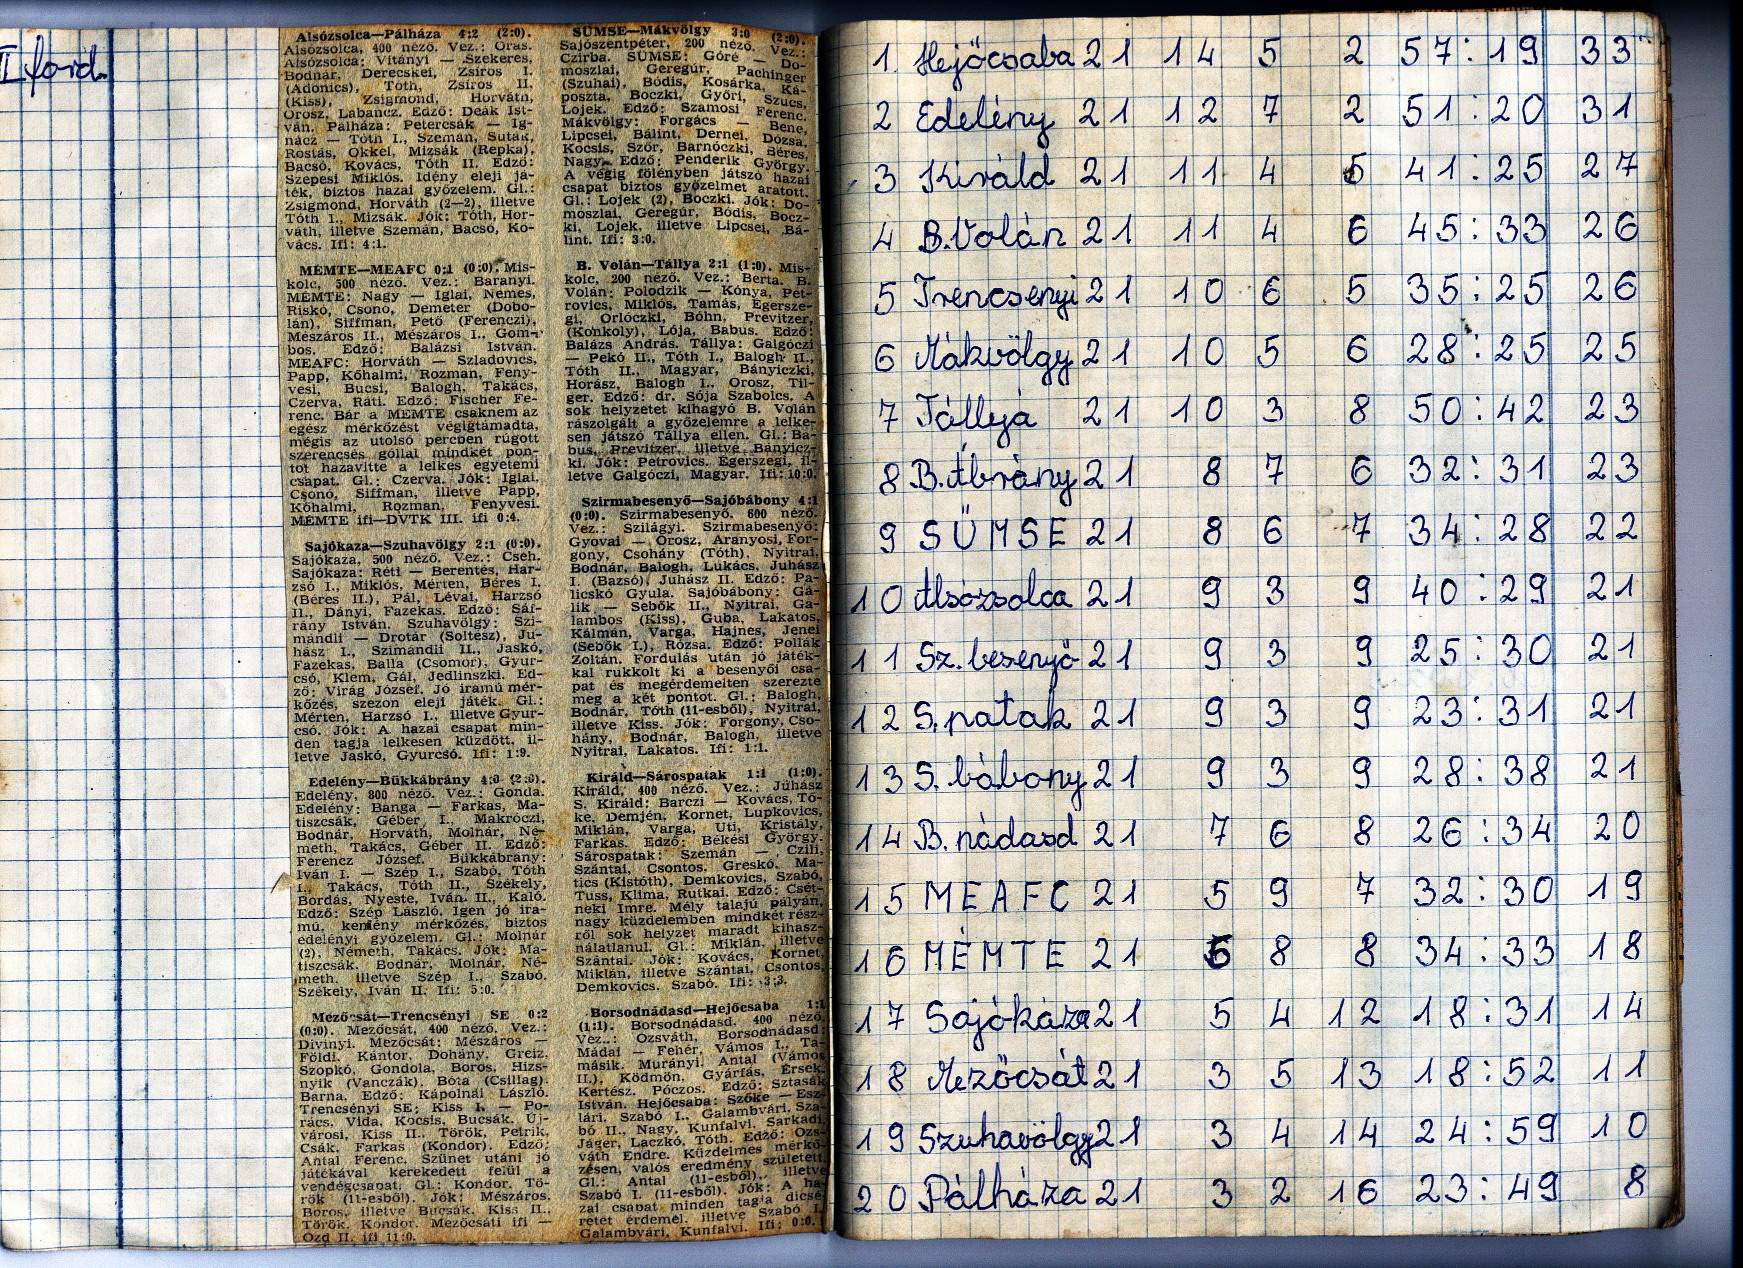 I. ford.
Alsózsolca—Pálháza 4:2 (2:0).
Alsózsolca, 400 néző. Vez.: Oras.
Alsózsolca: Vitányi — Szekeres,
Bodnár, Derecskei, Zsíros I.
(Adonics), Tóth, Zsíros II.
(Kiss), Zsigmond, Horváth,
Orosz, Labancz. Edző: Deák Ist-
ván. Pálháza: Petercsák — Ig-
nácz — Tóth I., Szemán, Suták,
Rostás, Okkel, Mizsák (Repka),
Bacsó, Kovács, Tóth II. Edző:
Szepesi Miklós. Idény eleji já-
ték, biztos hazai győzelem. Gl.:
Zsigmond, Horváth (2—2), illetve
Tóth I., Mizsák. Jók: Tóth, Hor-
váth, illetve Szemán, Bacsó, Ko-
vács. Ifi: 4:1.
MÉMTE—MEAFC 0:1 (0:0). Mis-
kolc, 500 néző. Vez.: Baranyi.
MÉMTE: Nagy — Iglai, Nemes,
Riskó, Csono, Demeter (Dobo-
lán), Siffman, Pető (Ferenczi),
Mészáros II., Mészáros I., Gom-
bos. Edző: Balázsi István.
MEAFC: Horváth — Szladovics,
Papp, Kőhalmi, Rozman, Feny-
vesi, Bucsi, Balogh, Takács,
Czerva, Ráti. Edző: Fischer Fe-
renc. Bár a MÉMTE csaknem az
egész mérkőzést végigtámadta,
mégis az utolsó percben rúgott
szerencsés góllal mindkét pon-
tot hazavitte a lelkes egyetemi
csapat. Gl.: Czerva. Jók: Iglai,
Csonó, Siffman, illetve Papp,
Kőhalmi, Rozman, Fenyvesi.
MÉMTE ifi—DVTK III. ifi 0:4.
Sajókaza—Szuhavölgy 2:1 (0:0).
Sajókaza, 500 néző. Vez.: Cseh.
Sajókaza: Réti — Berentés, Har-
zsó I., Miklós, Mérten, Béres I.
(Béres II.), Pál, Lévai, Harzsó
II., Dányi, Fazekas. Edző: Sáf-
rány István. Szuhavölgy: Szi-
mándli — Drotár (Soltész), Ju-
hász I., Szimándli II., Jaskó,
Fazekas, Balla (Csomor), Gyur-
csó, Klem, Gál, Jedlinszki. Ed-
ző: Virág József. Jó iramú mér-
kőzés, szezon eleji játék. Gl.:
Mérten, Harzsó I., illetve Gyur-
csó. Jók: A hazai csapat min-
den tagja lelkesen küzdött, il-
letve Jaskó, Gyurcsó. Ifi: 1:9.
Edelény—Bükkábrány 4:0 (2:0).
Edelény, 800 néző. Vez.: Gonda.
Edelény: Banga — Farkas, Ma-
tiszcsák, Géber I., Makróczi,
Bodnár, Horváth, Molnár, Né-
meth, Takács, Géber II. Edző:
Ferencz József. Bükkábrány:
Iván I. — Szép I., Szabó, Tóth
I., Takács, Tóth II., Székely,
Bordás, Nyeste, Iván II., Kaló.
Edző: Szép László. Igen jó ira-
mú, kemény mérkőzés, biztos
edelényi győzelem. Gl.: Molnár
(2), Németh, Takács. Jók: Ma-
tiszcsák, Bodnár, Molnár, Né-
meth, illetve Szép I., Szabó,
Székely, Iván II. Ifi: 5:0.
Mezőcsát—Trencsényi SE 0:2
(0:0). Mezőcsát, 400 néző. Vez.:
Divinyi. Mezőcsát: Mészáros —
Földi, Kántor, Dohány, Greiz,
Szopkó, Gondola, Boros, Hizs-
nyik (Vanczák), Bóta (Csillag),
Barna. Edző: Kápolnai László.
Trencsényi SE: Kiss I. — Po-
rács, Vida, Kocsis, Bucsák, Új-
városi, Kiss II., Török, Petrik,
Csák, Farkas (Kondor). Edző:
Antal Ferenc. Szünet utáni jó
játékával kerekedett felül a
vendégcsapat. Gl.: Kondor, Tö-
rök (11-esből). Jók: Mészáros,
Boros, illetve Bucsák, Kiss II.,
Török, Kondor. Mezőcsáti ifi —
Ózd II. ifi 11:0.
SÜMSE—Mákvölgy 3:0 (2:0).
Sajószentpéter, 200 néző. Vez.:
Czirba. SÜMSE: Góré — Do-
moszlai, Geregúr, Pachinger
(Szuhai), Bódis, Kosárka, Ká-
poszta, Boczki, Győri, Szűcs,
Lojek. Edző: Szamosi Ferenc.
Mákvölgy: Forgács — Bene,
Lipcsei, Bálint, Dernei, Dózsa,
Kocsis, Szőr, Barnóczki, Béres,
Nagy. Edző: Penderik György.
A végig fölényben játszó hazai
csapat biztos győzelmet aratott.
Gl.: Lojek (2), Boczki. Jók: Do-
moszlai, Geregúr, Bódis, Bocz-
ki, Lojek, illetve Lipcsei, Bá-
lint. Ifi: 3:0.
B. Volán—Tállya 2:1 (1:0). Mis-
kolc, 200 néző. Vez.: Berta. B.
Volán: Polodzik — Kónya, Pet-
rovics, Miklós, Tamás, Egersze-
gi, Orlóczki, Bóhn, Previtzer,
(Konkoly), Lója, Babus. Edző:
Balázs András. Tállya: Galgóczi
— Pekó II., Tóth I., Balogh II.,
Tóth II., Magyar, Bányiczki,
Horász, Balogh I., Orosz, Til-
ger. Edző: dr. Sója Szabolcs. A
sok helyzetet kihagyó B. Volán
rászolgált a győzelemre a lelke-
sen játszó Tállya ellen. Gl.: Ba-
bus, Previtzer, illetve Bányicz-
ki. Jók: Petrovics, Egerszegi, il-
letve Galgóczi, Magyar. Ifi: 10:0.
Szirmabesenyő—Sajóbábony 4:1
(0:0). Szirmabesenyő, 600 néző.
Vez.: Szilágyi. Szirmabesenyő:
Gyovai — Orosz, Aranyosi, For-
gony, Csohány (Tóth), Nyitrai,
Bodnár, Balogh, Lukács, Juhász
I. (Bazsó), Juhász II. Edző: Pa-
licskó Gyula. Sajóbábony: Gá-
lik — Sebők II., Nyitrai, Ga-
lambos (Kiss), Guba, Lakatos,
Kálmán, Varga, Hajnes, Jenei
(Sebők I.), Rózsa. Edző: Pollák
Zoltán. Fordulás után jó játék-
kal rukkolt ki a besenyői csa-
pat és megérdemelten szerezte
meg a két pontot. Gl.: Balogh,
Bodnár, Tóth (11-esből), Nyitrai,
illetve Kiss. Jók: Forgony, Cso-
hány, Bodnár, Balogh, illetve
Nyitrai, Lakatos. Ifi: 1:1.
Királd—Sárospatak 1:1 (1:0).
Királd, 400 néző. Vez.: Juhász
S. Királd: Barczi — Kovács, Tő-
ke, Demjén, Kornet, Lupkovics,
Miklán, Varga, Uti, Kristály,
Farkas. Edző: Békési György.
Sárospatak: Szemán — Czili,
Szántai, Csontos, Greskó, Ma-
tics (Kistóth), Demkovics, Szabó,
Tuss, Klima, Rutkai. Edző: Csét-
neki Imre. Mély talajú pályán,
nagy küzdelemben mindkét rész-
ről sok helyzet maradt kihasz-
nálatlanul. Gl.: Miklán, illetve
Szántai. Jók: Kovács, Kornet,
Miklán, illetve Szántai, Csontos,
Demkovics, Szabó. Ifi: 3:3.
Borsodnádasd—Hejőcsaba 1:1
(1:1). Borsodnádasd, 400 néző.
Vez.: Ozsváth. Borsodnádasd:
Mádai — Fehér, Vámos I., Ta-
másik, Murányi, Antal (Vámos
II.), Ködmön, Gyárfás, Érsek,
Kertész, Póczos. Edző: Sztasák
István. Hejőcsaba: Szőke — Esz-
lári, Szabó I., Galambvári, Sza-
bó II., Nagy, Kunfalvi, Sarkadi,
Jáger, Laczkó, Tóth. Edző: Ozs-
váth Endre. Küzdelmes mérkő-
zésen, valós eredmény született.
Gl.: Antal (11-esből), illetve
Szabó I. (11-esből). Jók: A ha-
zai csapat minden tagja dicsé-
retet érdemel, illetve Szabó I.,
Galambvári, Kunfalvi. Ifi: 0:0.
1. Hejőcsaba 21 14 5 2 57:19 33
2 Edelény 21 12 7 2 51:20 31
3 Királd 21 11 4 6 41:25 27
4 B.Volán 21 11 4 6 45:33 26
5 Trencsenyi 21 10 6 5 35:25 26
6 Mákvölgy 21 10 5 6 28:25 25
7 Tállya 21 10 3 8 50:42 23
8 B.Ábrány 21 8 7 6 32:31 23
9 SÜMSE 21 8 6 7 34:28 22
10 Alsózsolca 21 9 3 9 40:29 21
11 Sz.besenyő 21 9 3 9 25:30 21
12 S.patak 21 9 3 9 23:31 21
13 S.bábony 21 9 3 9 28:38 21
14 B.nádasd 21 7 6 8 26:34 20
15 MEAFC 21 5 9 7 32:30 19
16 MÉMTE 21 5 8 8 34:33 18
17 Sajókáza 21 5 4 12 18:31 14
18 Mezőcsát 21 3 5 13 18:52 11
19 Szuhavölgy 21 3 4 14 24:59 10
20 Pálháza 21 3 2 16 23:49 8